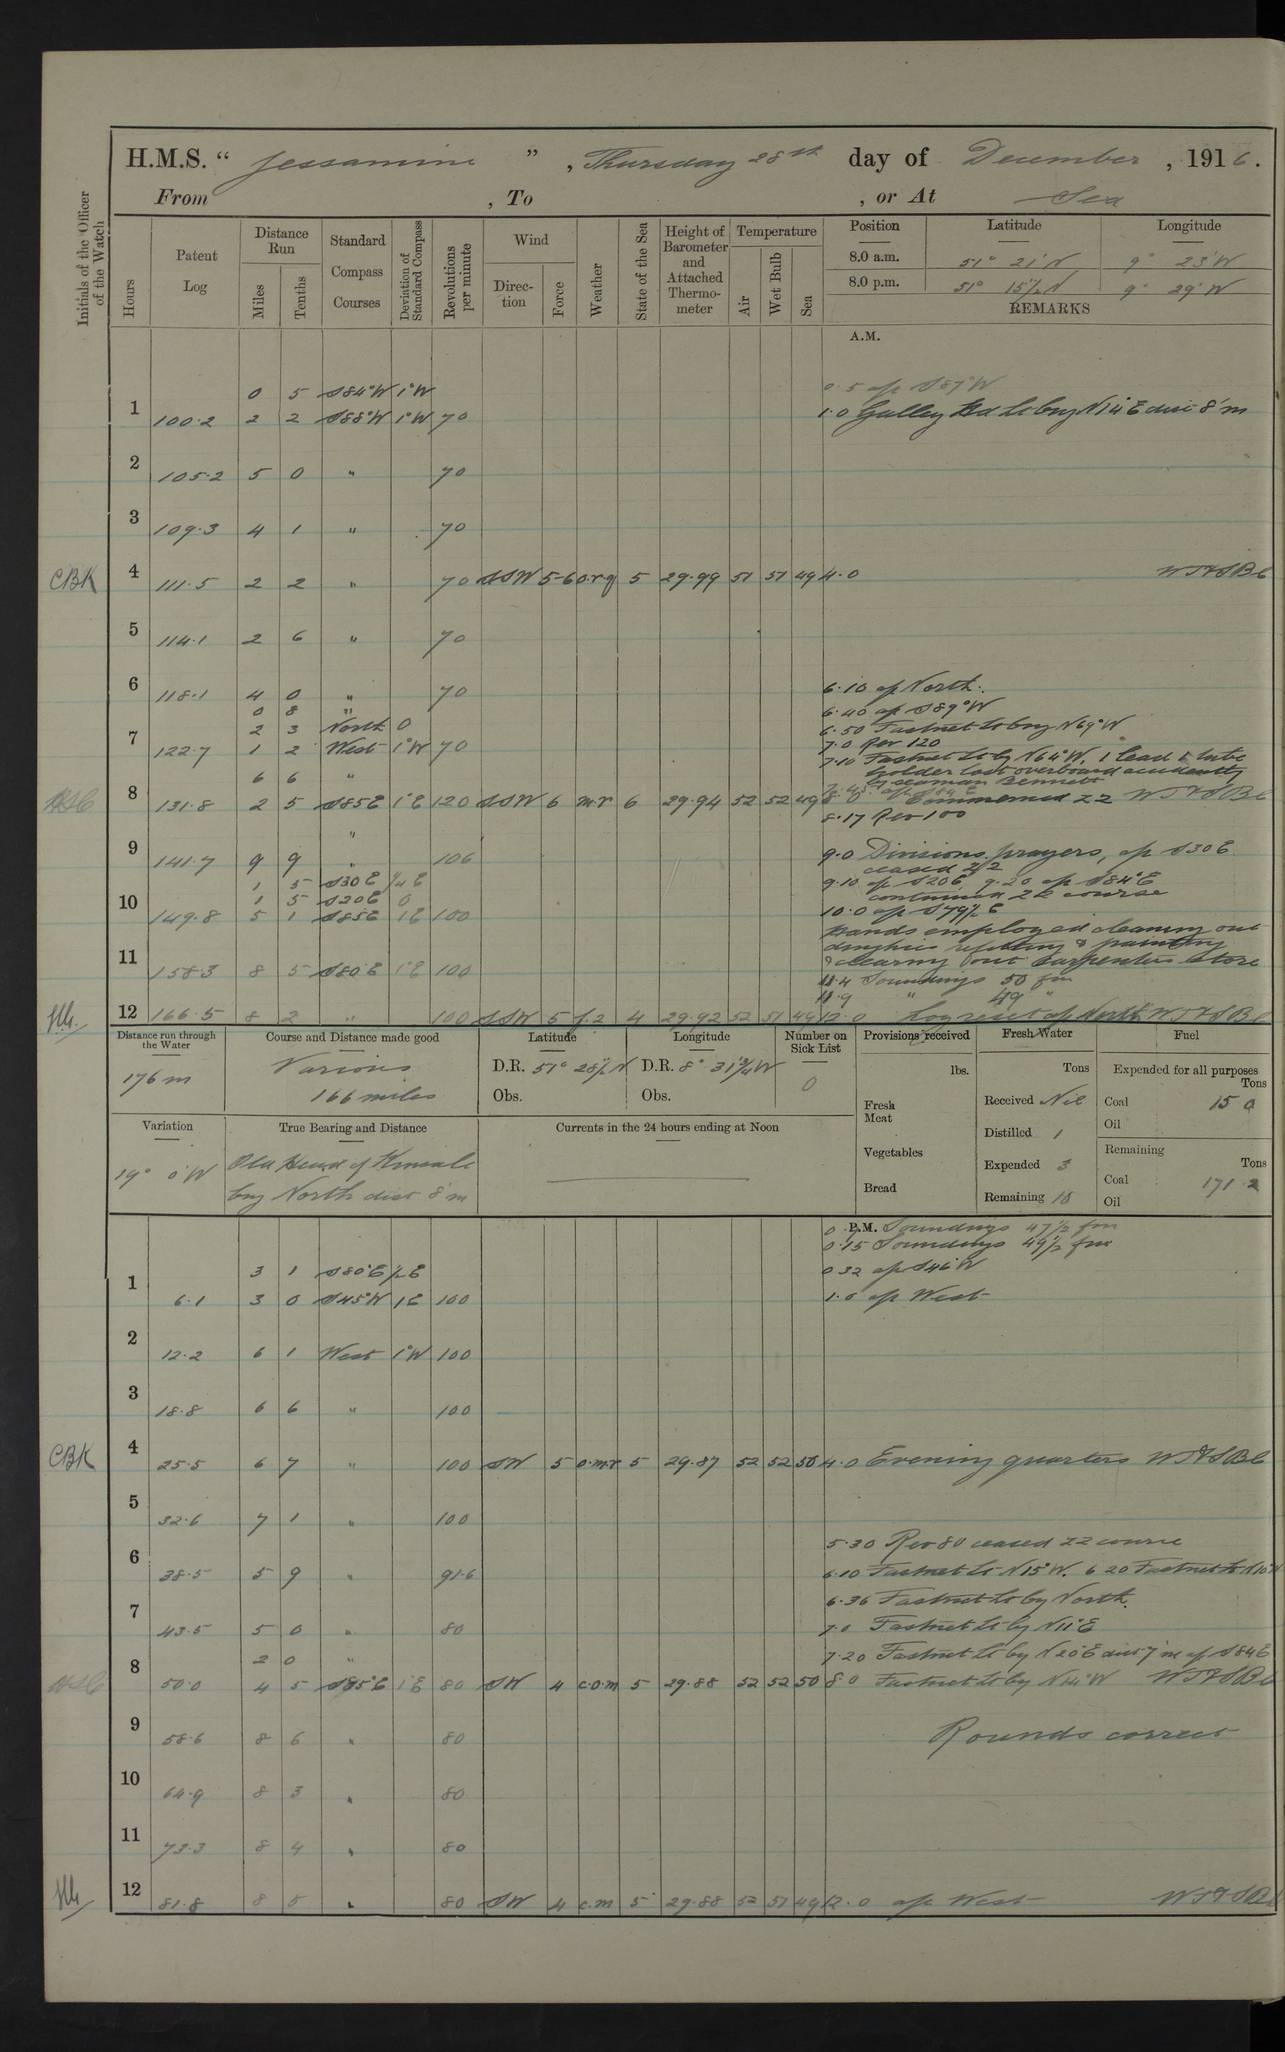 H.M.S. “ Jessamine ” , Thursday 28th day of December , 1916.
From , To , or At Sea
Initials of the Officer of the Watch
Hours
Patent Log
Distance Run
Miles
Tenths
Standard Compass Courses
Deviation of Standard Compass
Revolutions per minute
Wind
Direction
Force
Weather
State of the Sea
Height of Barometer and Attached Thermometer
Temperature
Air
Wet Bulb
Sea
Position Latitude Longitude
8.0 a.m. 51° 21' N 9° 23' W
8.0 p.m. 51° 15½ N 9° 29' W
REMARKS
A.M.
0 5 S84°W 1°W 0.5 a/c S87°W
1 100.2 2 2 S88°W 1°W 70 1.0 Galley Hd Lt brg N14°E dist 8'm
2 105.2 5 0 " 70
3 109.3 4 1 " 70
CBK 4 111.5 2 2 " 70 SSW 5-6 o.r.q 5 29.99 51 51 49 4.0
5 114.1 2 6 " 70
6 118.1 4 0 " 70 6.10 a/c North.
0 8 " 6.40 a/c S89°W
2 3 North 0 6.50 Fastnet Lt brg N69°W
7 122.7 1 2 West 1°W 70 7.0 Rev 120
7.10 Fastnet Lt by N64°W, 1 lead & tube
6 6 " holder lost overboard accidently
by seaman Bennett
8 131.8 2 5 S85E 1°E 120 SSW 6 m.r 6 29.94 52 52 49 8.0 Commenced ZZ
8.17 Rev 100
"
9 141.7 9 9 " 106 9.0 Divisions, prayers, a/c S30E
ceased ZZ
1 5 S30E ¼E 9.10 a/c S20E 9.20 a/c S84°E
1 5 S20E 0 continued ZZ course
10 149.8 5 1 S85E 1E 100 10.0 a/c S79½E
Hands employed cleaning out
dinghies refitting & painting
11 158.3 8 5 S80°E 1°E 100 & clearing out Carpenters store
11.4 Soundings 50 fm
11.9 " 49 "
12 166.5 8 2 " 100 SSW 5 4 29.92 52 51 49 12.0 Log reset a/c North
Distance run through the Water
176 m
Course and Distance made good
Various
166 miles
Latitude
D.R. 51° 28½ N
Obs.
Longitude
D.R. 8° 31¾ W
Obs.
Number on Sick List
0
Provisions received
lbs.
Fresh Meat
Vegetables
Bread
Fresh Water
Tons
Received Nil
Distilled 1
Expended 3
Remaining 18
Fuel
Expended for all purposes
Tons
Coal 15 0
Oil
Remaining
Tons
Coal 171.2
Oil
Variation
19° 0'W
True Bearing and Distance
Old Head of Kinsale
brg North dist 8'm
Currents in the 24 hours ending at Noon
P.M. Soundings 47½ fm
0.15 Soundings 49½ fm
3 1 S80°E ½E 0.32 a/c S46°W
1 6.1 3 0 S45°W 1E 100 1.0 a/c West
2 12.2 6 1 West 1°W 100
3 18.8 6 6 " 100
CBK 4 25.5 6 7 " 100 SW 5 o.m.r 5 29.87 52 52 50 4.0 Evening quarters
5 32.6 7 1 " 100
5.30 Rev 80 ceased ZZ course
6 38.5 5 9 " 91.6 6.10 Fastnet Lt N15°W. 6 20 Fastnet Lt N10°W
6.36 Fastnet Lt by North.
7 43.5 5 0 " 80 7.0 Fastnet Lt by N11°E
2 0 " 7.20 Fastnet Lt by N20°E dist 7'm a/c S84E
8 50.0 4 5 S85°E 1°E 80 SW 4 c.o.m 5 29.88 52 52 50 8.0 Fastnet Lt by N14°W
9 58.6 8 6 " 80 Rounds correct
10 64.9 8 3 " 80
11 73.3 8 4 " 80
12 81.8 8 5 " 80 SW 4 c.m 5 29.88 52 51 49 12.0 a/c West